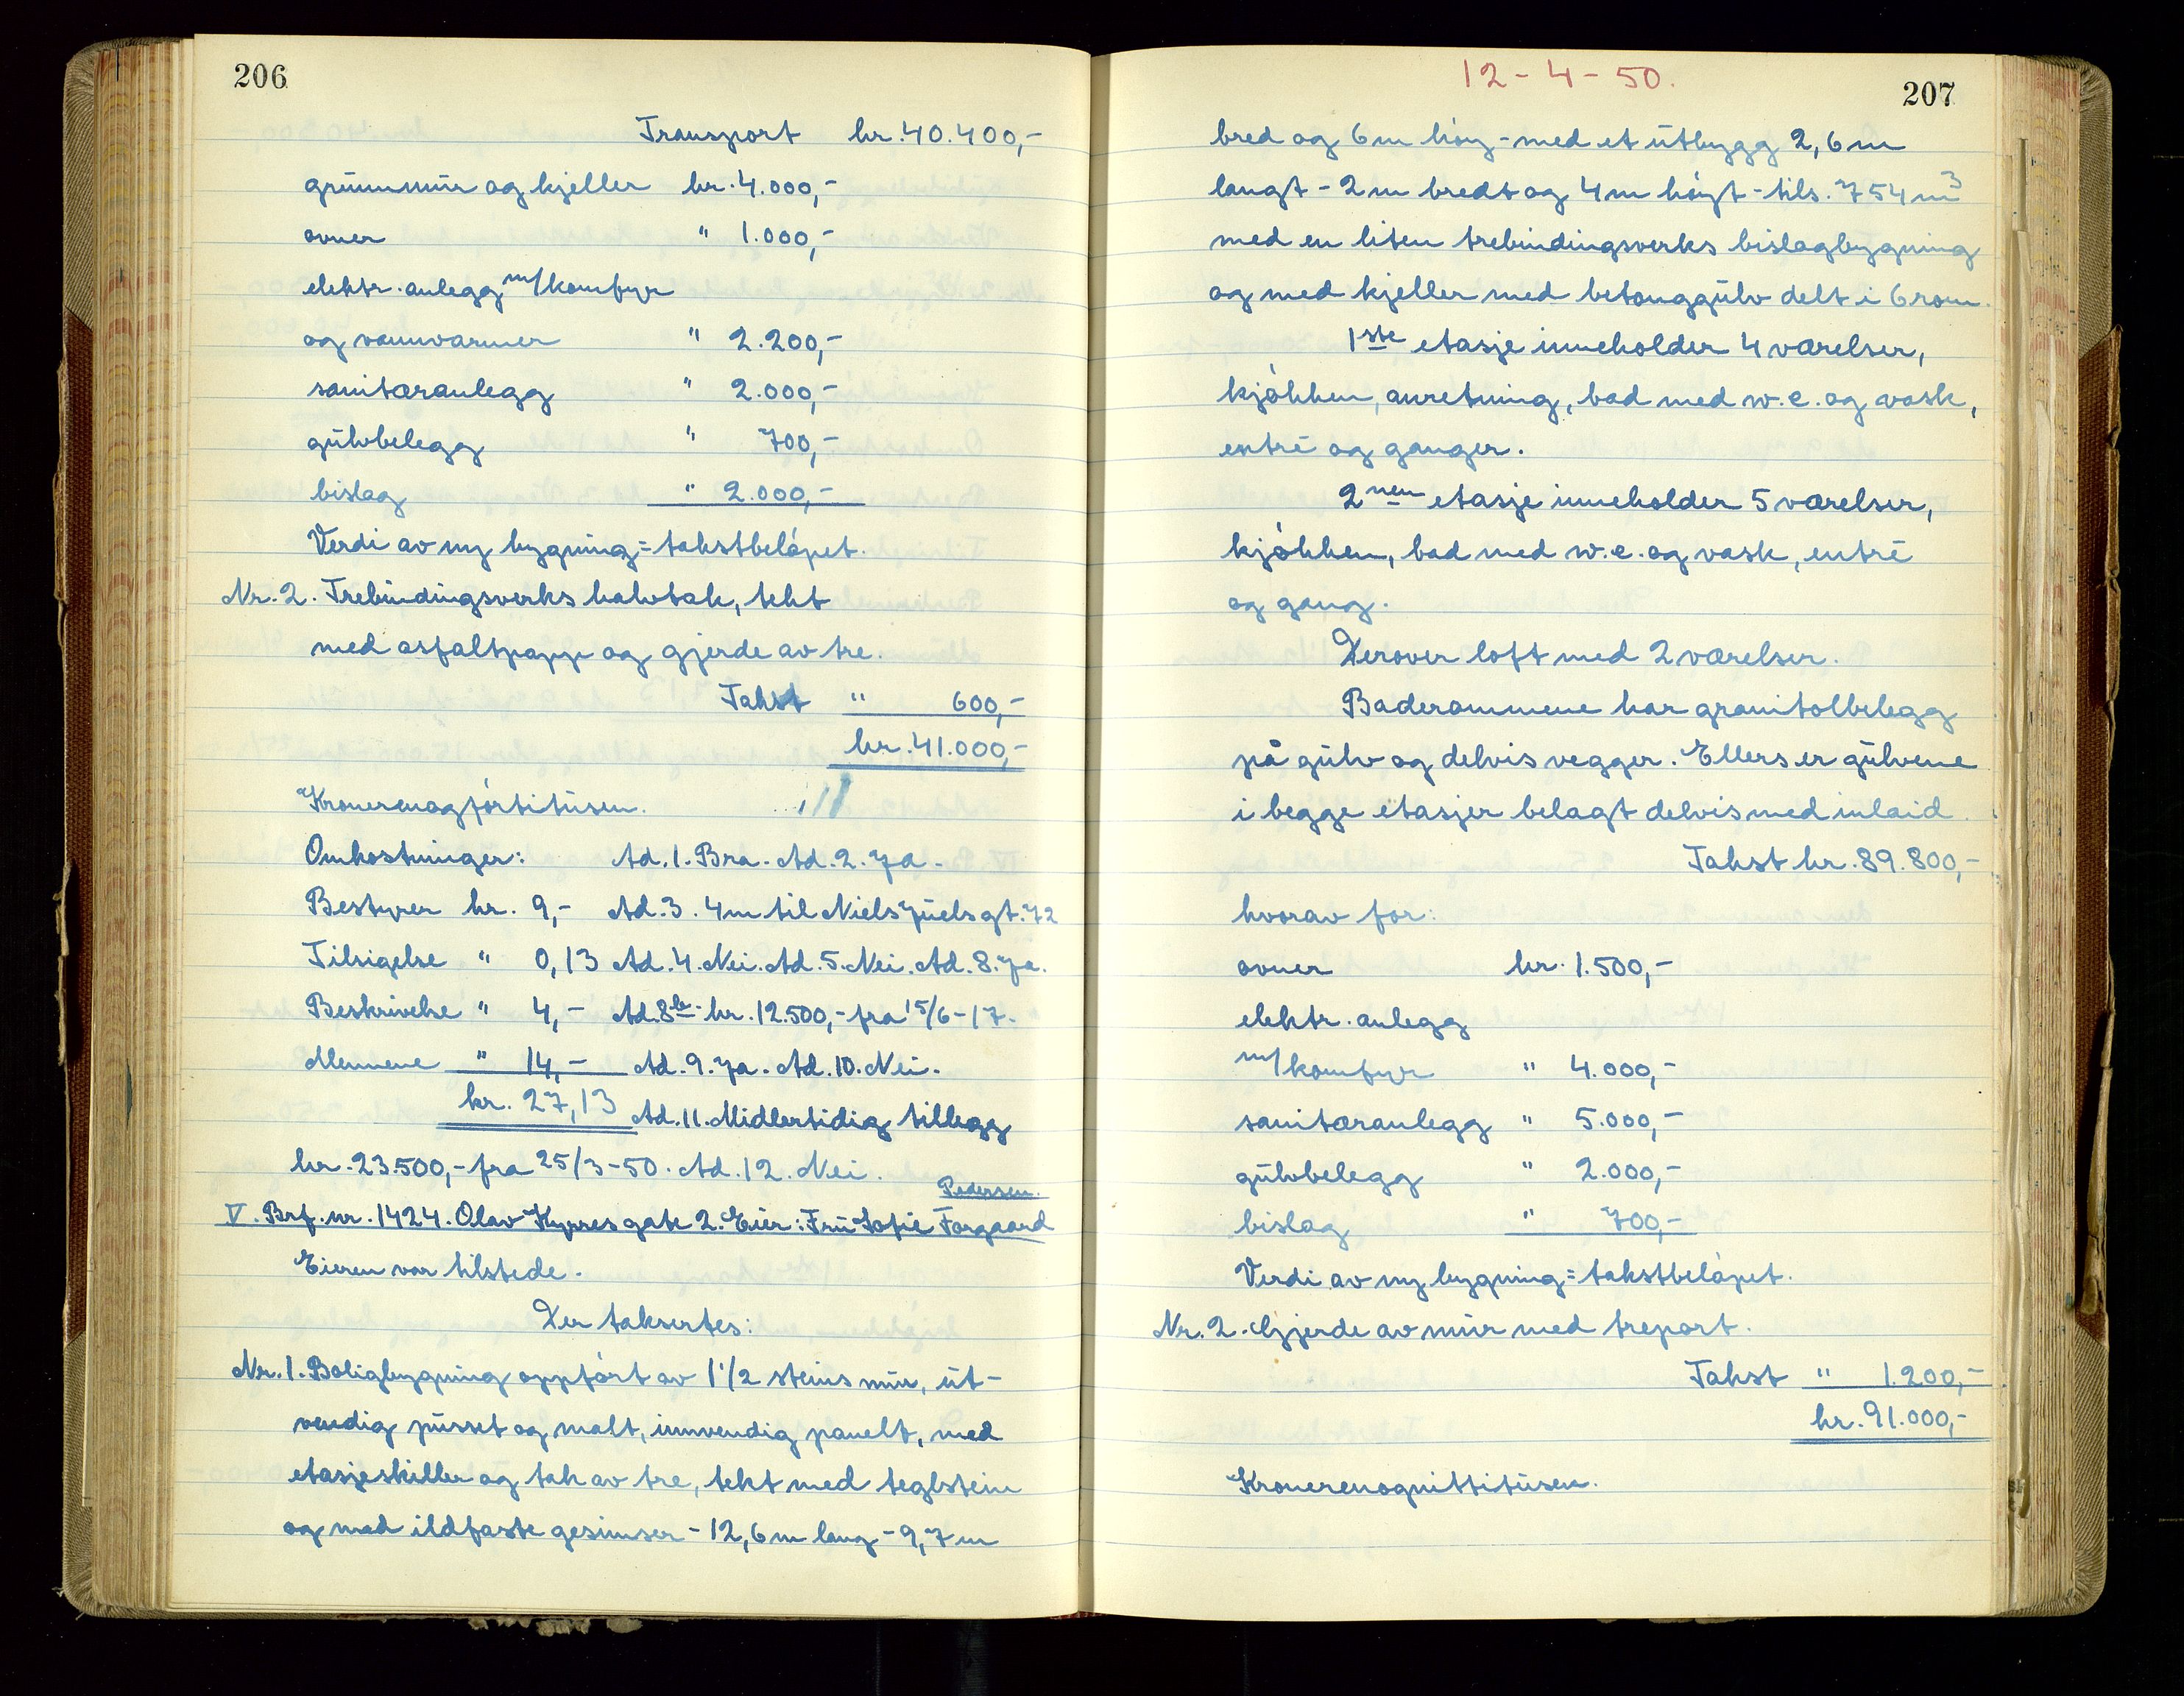 206
Transport kr. 40.400,-
grunnmur og kjeller kr. 4.000,-
ovner " 1.000,-
elektr. anlegg m/komfyr
og vannvarmer " 2.200,-
sanitæranlegg " 2.000,-
gulvbelegg " 700,-
bislag " 2.000,-
Verdi av ny bygning = takstbeløpet.
Nr. 2. Trebindingsverks halvtak, tekt
med asfaltpapp og gjerde av tre.
Takst " 600,-
kr. 41.000,-
Kronerenogførtitusen.
Omkostninger: Ad. 1. Bra. Ad. 2. Ja.
Bestyrer kr. 9,- Ad. 3. 4m til Niels Juels gt. 72
Tilsigelse " 0,13 Ad. 4. Nei. Ad. 5. Nei. Ad. 8. Ja.
Beskrivelse " 4,- Ad. 8b. kr. 12.500,- fra 15/6-17.
Mennene " 14,- Ad. 9. Ja. Ad. 10. Nei.
kr. 27,13 Ad. 11. Midlertidig tillegg
kr. 23.500,- fra 25/3-50. Ad. 12. Nei.
Pedersen.
V. Brf. nr. 1424. Olav Kyrres gate 2. Eier: Fru Sofie Forgaard
Eieren var tilstede.
Der taksertes:
Nr. 1. Boligbygning oppført av 1 1/2 steins mur, ut-
vendig pusset og malt, innvendig panelt, med
etasjeskiller og tak av tre, tekt med teglstein
og med ildfaste gesimser - 12,6 m lang - 9,7 m
12-4-50.
207
bred og 6 m høy - med et utbygg 2,6 m
langt - 2 m bredt og 4 m høyt - tils. 754 m3
med en liten trebindingsverks bislagbygning
og med kjeller med betonggulv delt i 6 rom.
1ste etasje inneholder 4 værelser,
kjøkken, anretning, bad med w.c. og vask,
entré og ganger.
2nen etasje inneholder 5 værelser,
kjøkken, bad med w.c. og vask, entré
og gang.
Derover loft med 2 værelser.
Baderommene har granitolbelegg
på gulv og delvis vegger. Ellers er gulvene
i begge etasjer belagt delvis med inlaid.
Takst kr. 89.800,-
hvorav for:
ovner kr. 1.500,-
elektr. anlegg
m/komfyr " 4.000,-
sanitæranlegg " 5.000,-
gulvbelegg " 2.000,-
bislag " 700,-
Verdi av ny bygning = takstbeløpet.
Nr. 2. Gjerde av mur med treport.
Takst " 1.200,-
kr. 91.000,-
Kronerenognittitusen.